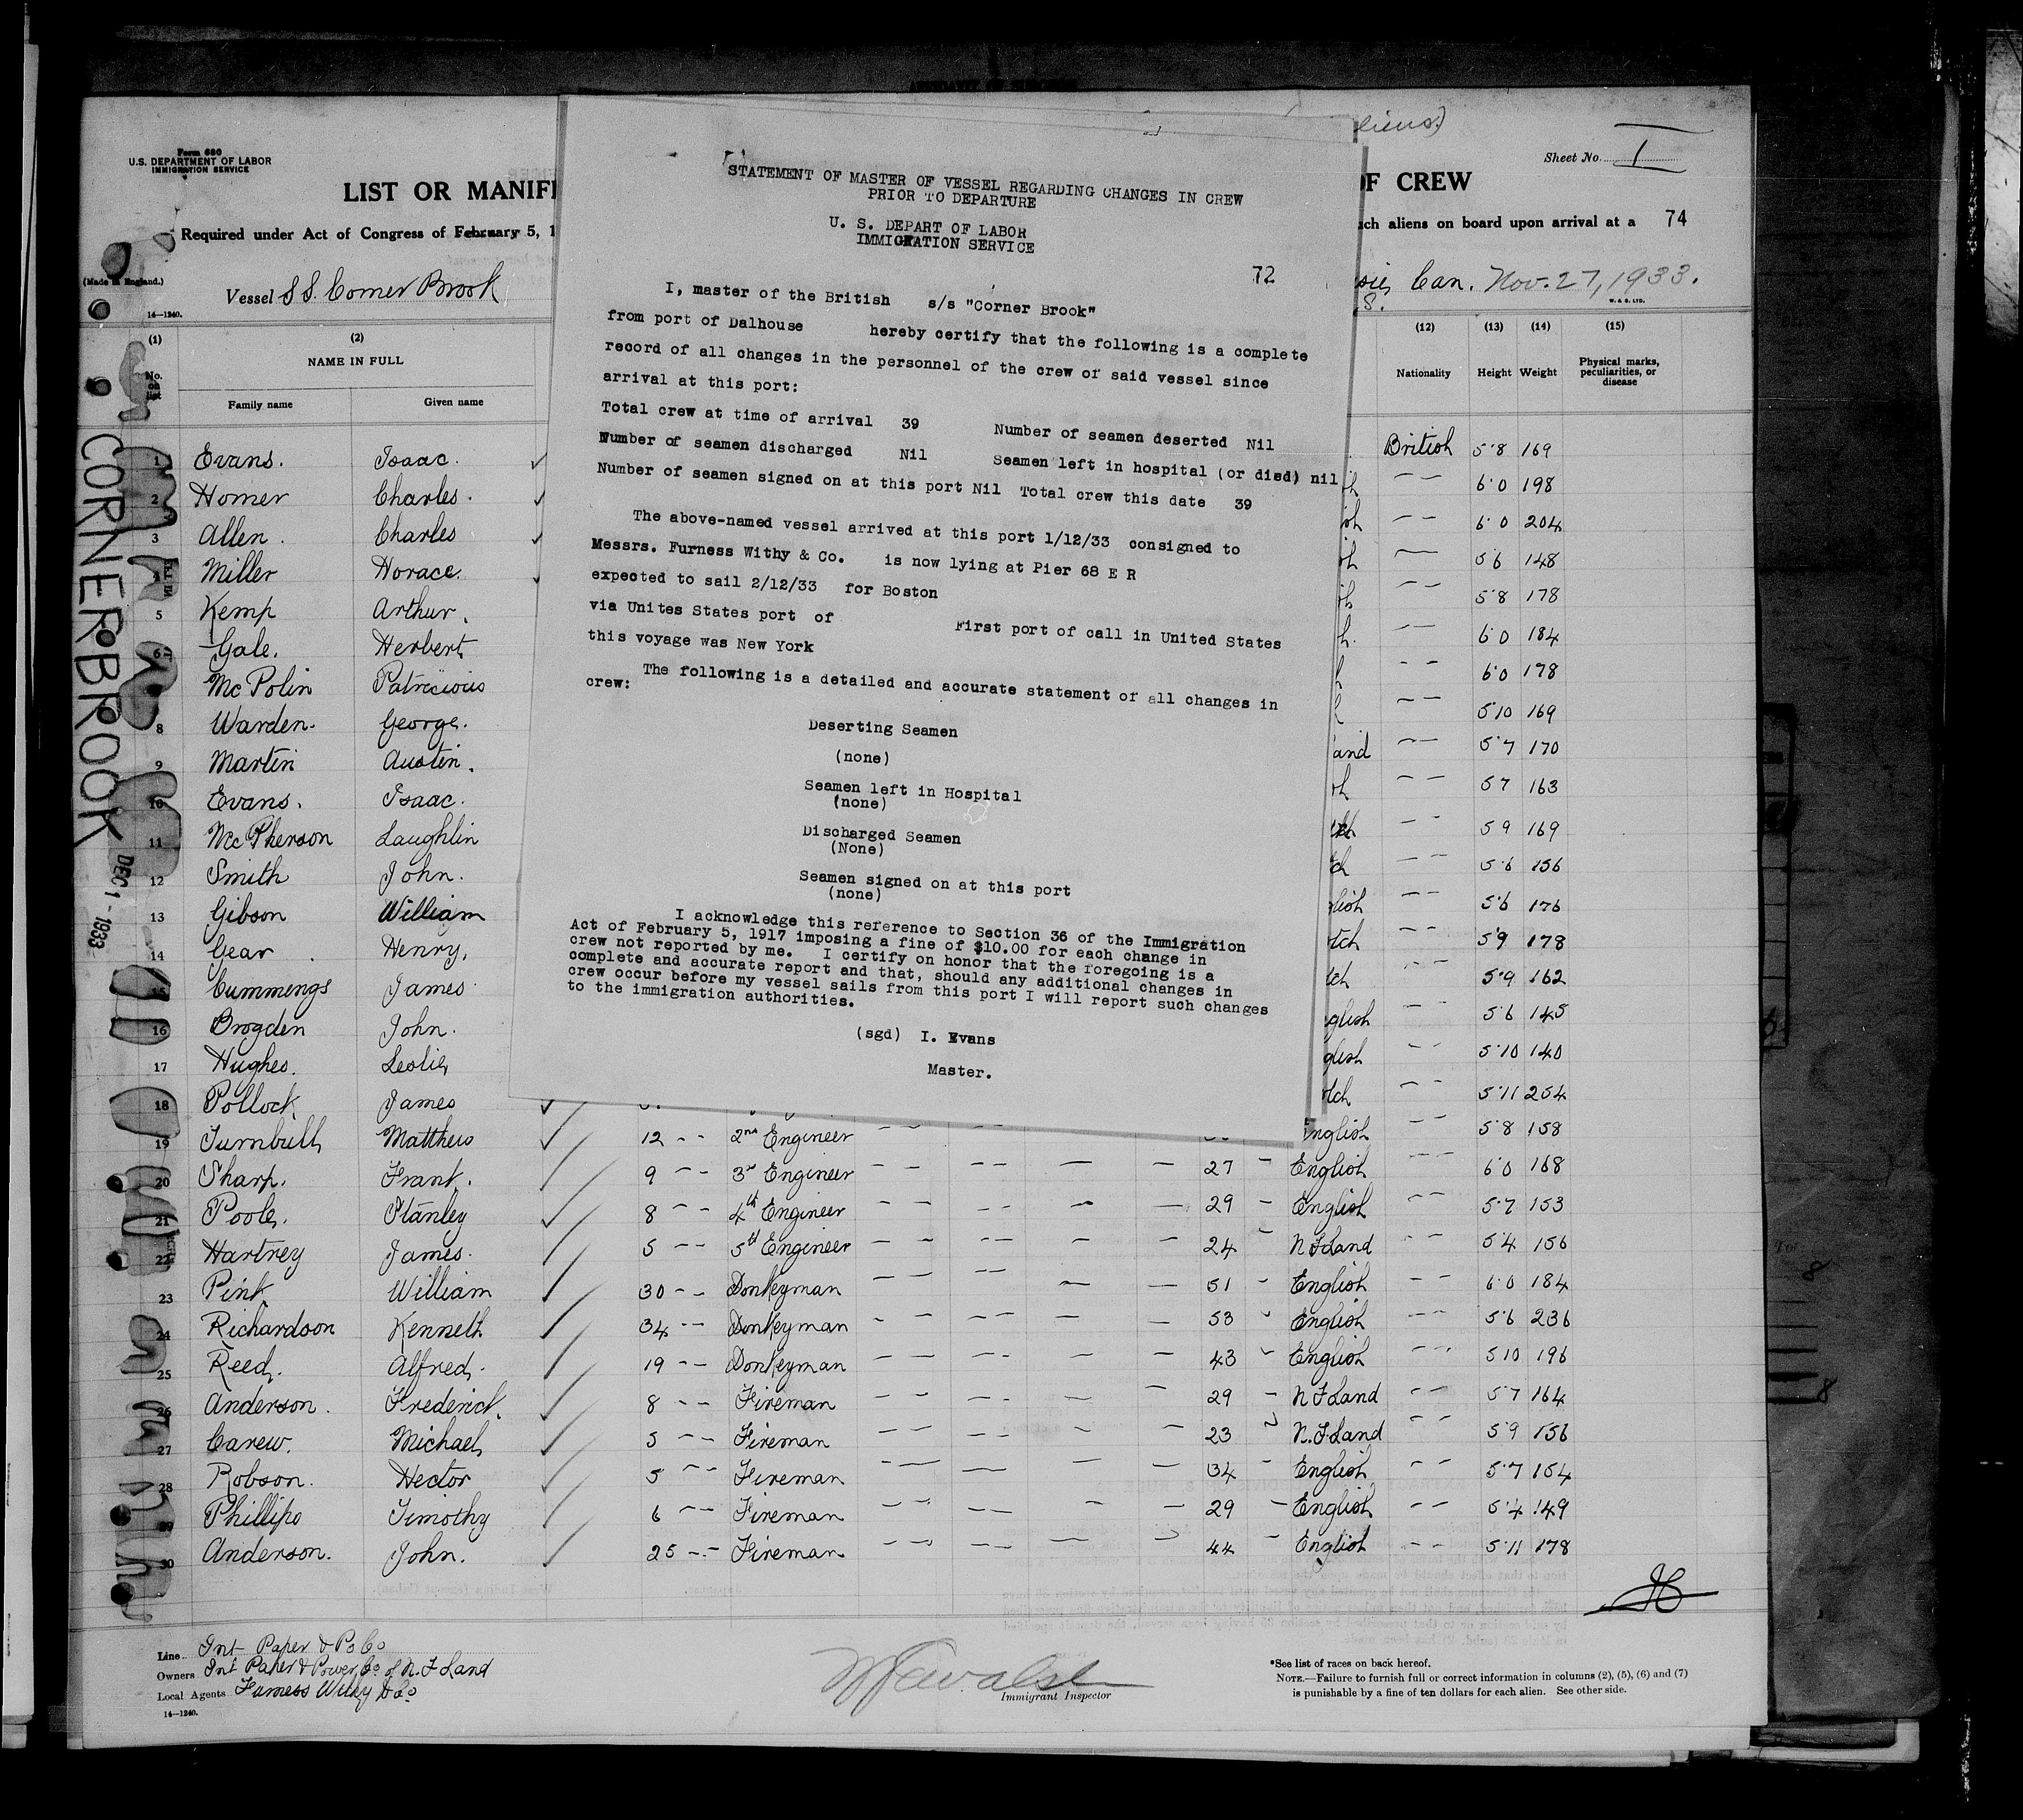 Form 680
U.S. DEPARTMENT OF LABOR
IMMIGRATION SERVICE
Sheet No. 1
LIST OR MANIF
OF CREW
Required under Act of Congress of February 5, 1
uch aliens on board upon arrival at a 74
(Made in England.)
Vessel S S. Corner Brook
Can. Nov. 27, 1933.
14—1240.
W. & S. LTD.
(1) (2) (12) (13) (14) (15)
No. on list
NAME IN FULL
Family name Given name
Nationality Height Weight Physical marks, peculiarities, or disease
STATEMENT OF MASTER OF VESSEL REGARDING CHANGES IN CREW
PRIOR TO DEPARTURE
U. S. DEPART OF LABOR
IMMIGRATION SERVICE
72
I, master of the British s/s "Corner Brook"
from port of Dalhouse hereby certify that the following is a complete
record of all changes in the personnel of the crew of said vessel since
arrival at this port:
Total crew at time of arrival 39 Number of seamen deserted Nil
Number of seamen discharged Nil Seamen left in hospital (or died) nil
Number of seamen signed on at this port Nil Total crew this date 39
The above-named vessel arrived at this port 1/12/33 consigned to
Messrs. Furness Withy & Co. is now lying at Pier 68 E R
expected to sail 2/12/33 for Boston
via Unites States port of First port of call in United States
this voyage was New York
The following is a detailed and accurate statement of all changes in
crew:
Deserting Seamen
(none)
Seamen left in Hospital
(none)
Discharged Seamen
(None)
Seamen signed on at this port
(none)
I acknowledge this reference to Section 36 of the Immigration
Act of February 5, 1917 imposing a fine of $10.00 for each change in
crew not reported by me. I certify on honor that the foregoing is a
complete and accurate report and that, should any additional changes in
crew occur before my vessel sails from this port I will report such changes
to the immigration authorities.
(sgd) I. Evans
Master.
CORNERBROOK
DEC 1 - 1933
1 Evans. Isaac. British 5·8 169
2 Homer Charles. — — 6·0 198
3 Allen. Charles — — 6·0 204
4 Miller Horace. — 5·6 148
5 Kemp Arthur. — — 5·8 178
6 Gale. Herbert — — 6·0 184
Mc Polin Patricious — — 6·0 178
8 Warden. George. — — 5·10 169
9 Martin Austin. and — — 5·7 170
10 Evans. Isaac. — — 5 7 163
11 Mc Pherson Laughlin — — 5 9 169
12 Smith John. — — 5·6 156
13 Gibson William lish — — 5·6 176
14 Gear Henry, tch — — 5·9 178
15 Cummings James tch — — 5·9 162
16 Brogden John. glish — 5·6 145
17 Hughes. Leslie, glish — — 5·10 140
18 Pollock James tch — — 5·11 254
19 Turnbull Matthew 12 - - 2nd Engineer English — — 5·8 158
20 Sharp. Frank. 9 - - 3rd Engineer 27 - English — — 6·0 168
21 Poole. Stanley 8 - - 4th Engineer 29 - English — — 5·7 153
22 Hartrey James. 5 - - 5th Engineer 24 - N F Land — — 5·4 156
23 Pink William 30 - - Donkeyman 51 - English — — 6·0 184
24 Richardson Kenneth 34 - - Donkeyman 53 - English — — 5·6 236
25 Reed. Alfred. 19 - - Donkeyman 43 - English — — 5 10 196
26 Anderson. Frederick. 8 - - Fireman 29 - N F Land — — 5·7 164
27 Carew. Michael 5 - - Fireman 23 - N. F Land — — 5 9 156
28 Robson. Hector 5 - - Fireman 34 - English — — 5·7 154
29 Phillips Timothy 6 - - Fireman 29 - English — — 5·4 149
30 Anderson. John. 25 - - Fireman 44 - English — — 5·11 178
Line Int Paper & Po Co
Owners Int Paper & Power Co of N. F Land
Local Agents Furness Withy & Co
14—1240.
Immigrant Inspector
*See list of races on back hereof.
NOTE.—Failure to furnish full or correct information in columns (2), (5), (6) and (7)
is punishable by a fine of ten dollars for each alien. See other side.